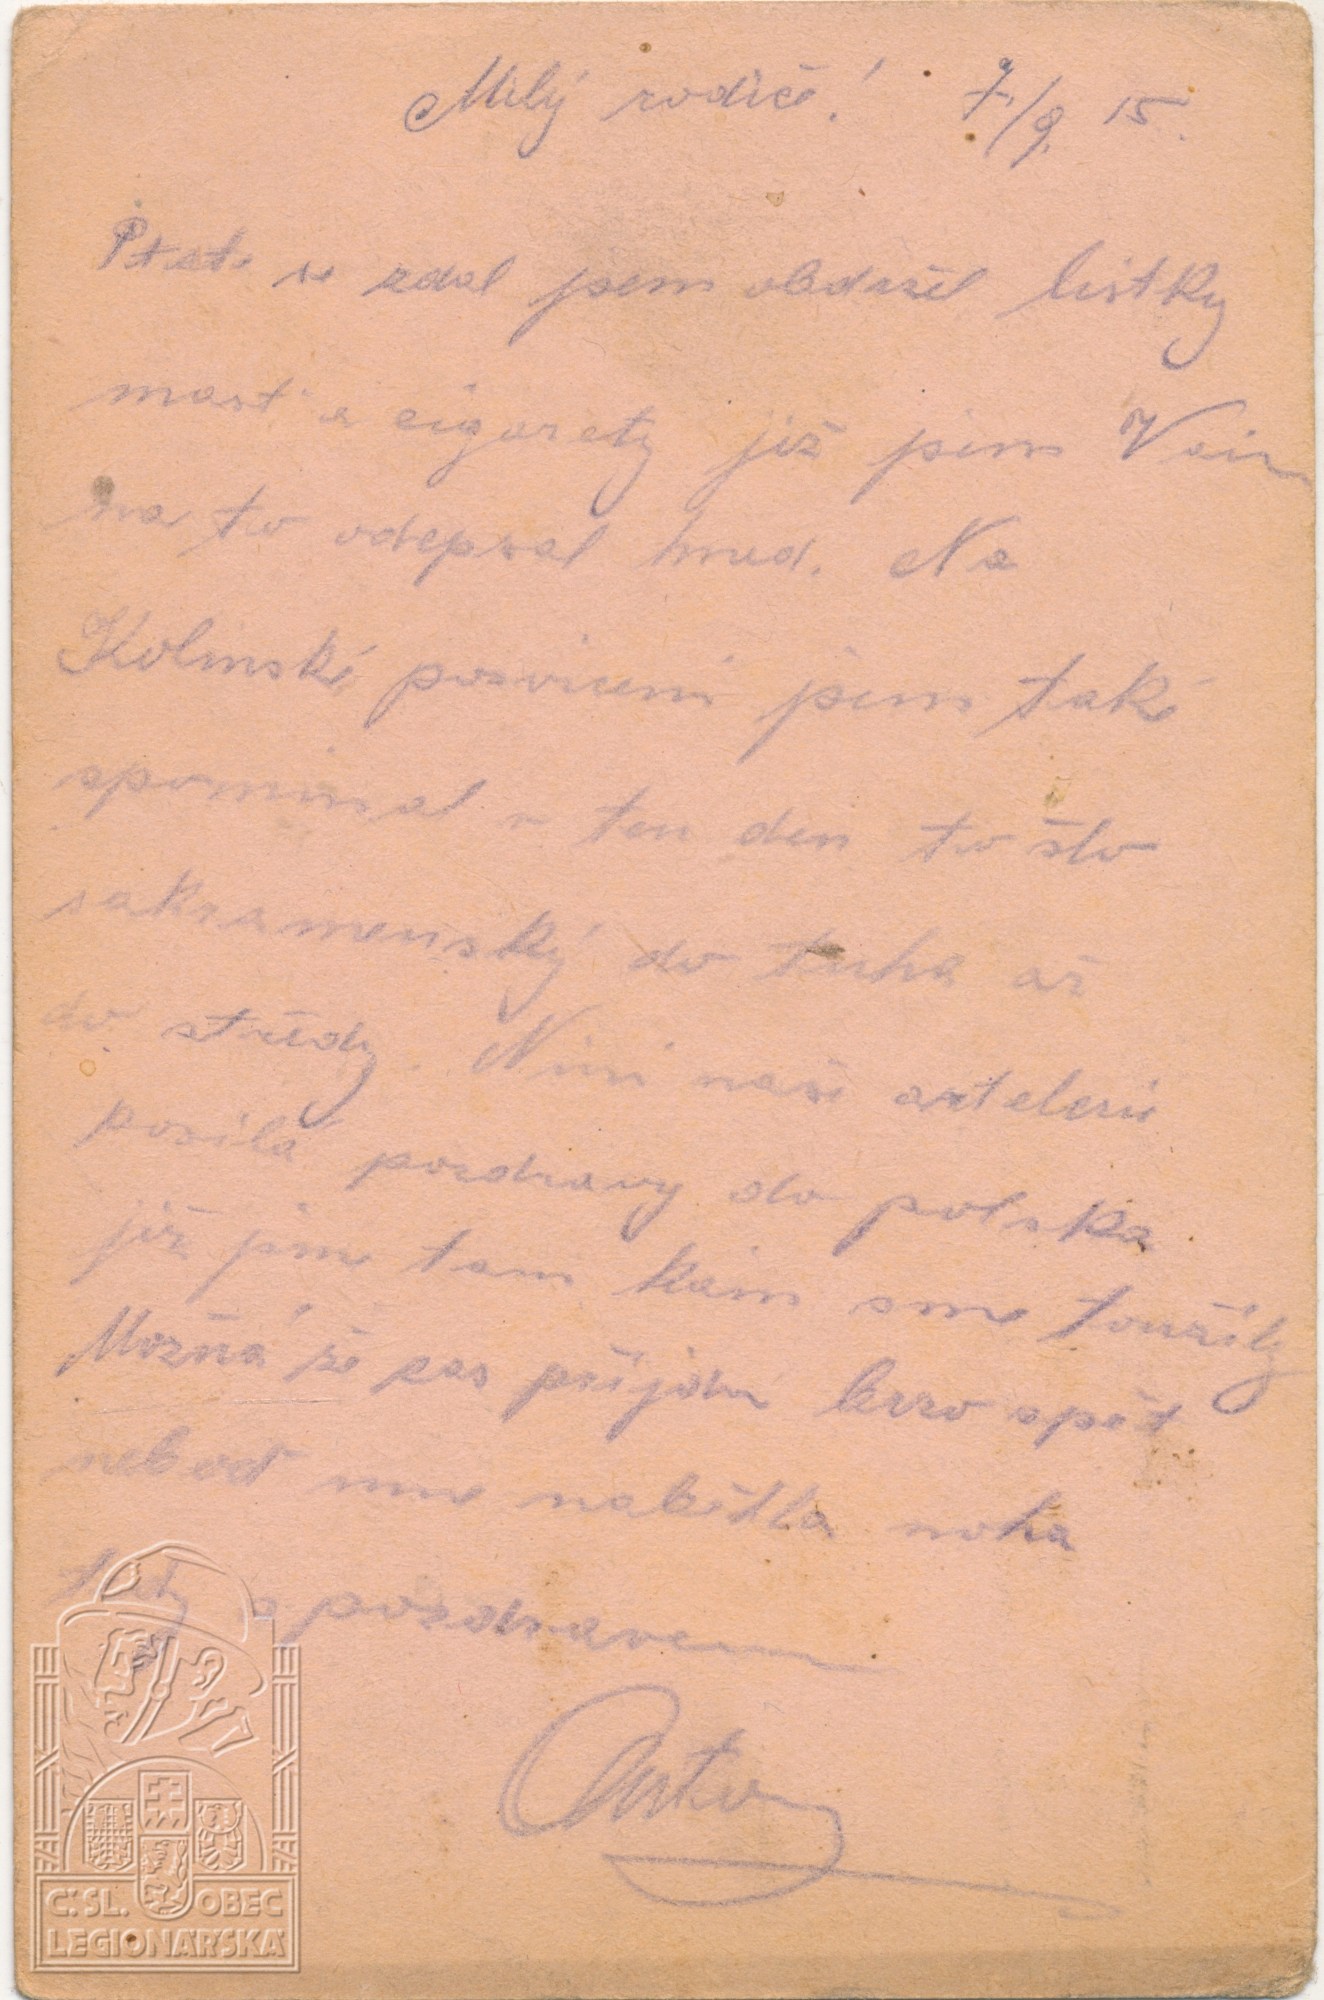 Milý rodiče! 7./9. 15.
Ptate se zdal jsem obdržel lístky
mast a cigarety již jsem Vám
na to odepsal hned. Na
Kolínské posvícení jsem také
spomínal v ten den to šlo
sakramenský do tuha až
do středy. Nini naše artelerie
posílá pozdravy do polska
již jsme tam kam sme toužily
Možná že zas přijdu brzo spět
neboť mne naběhla noha
tedy s pozdravem
Anton
Č.SL. OBEC
LEGIONÁŘSKÁ